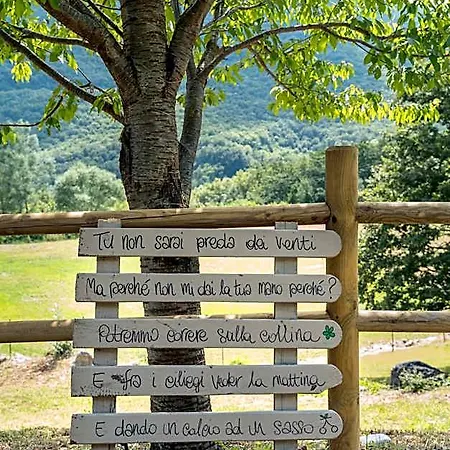 Tu non sarai preda dei venti
Ma perché non mi dai la tua mano perché?
Potremmo correre sulla collina
E fra i ciliegi veder la mattina
E dando un calcio ad un sasso